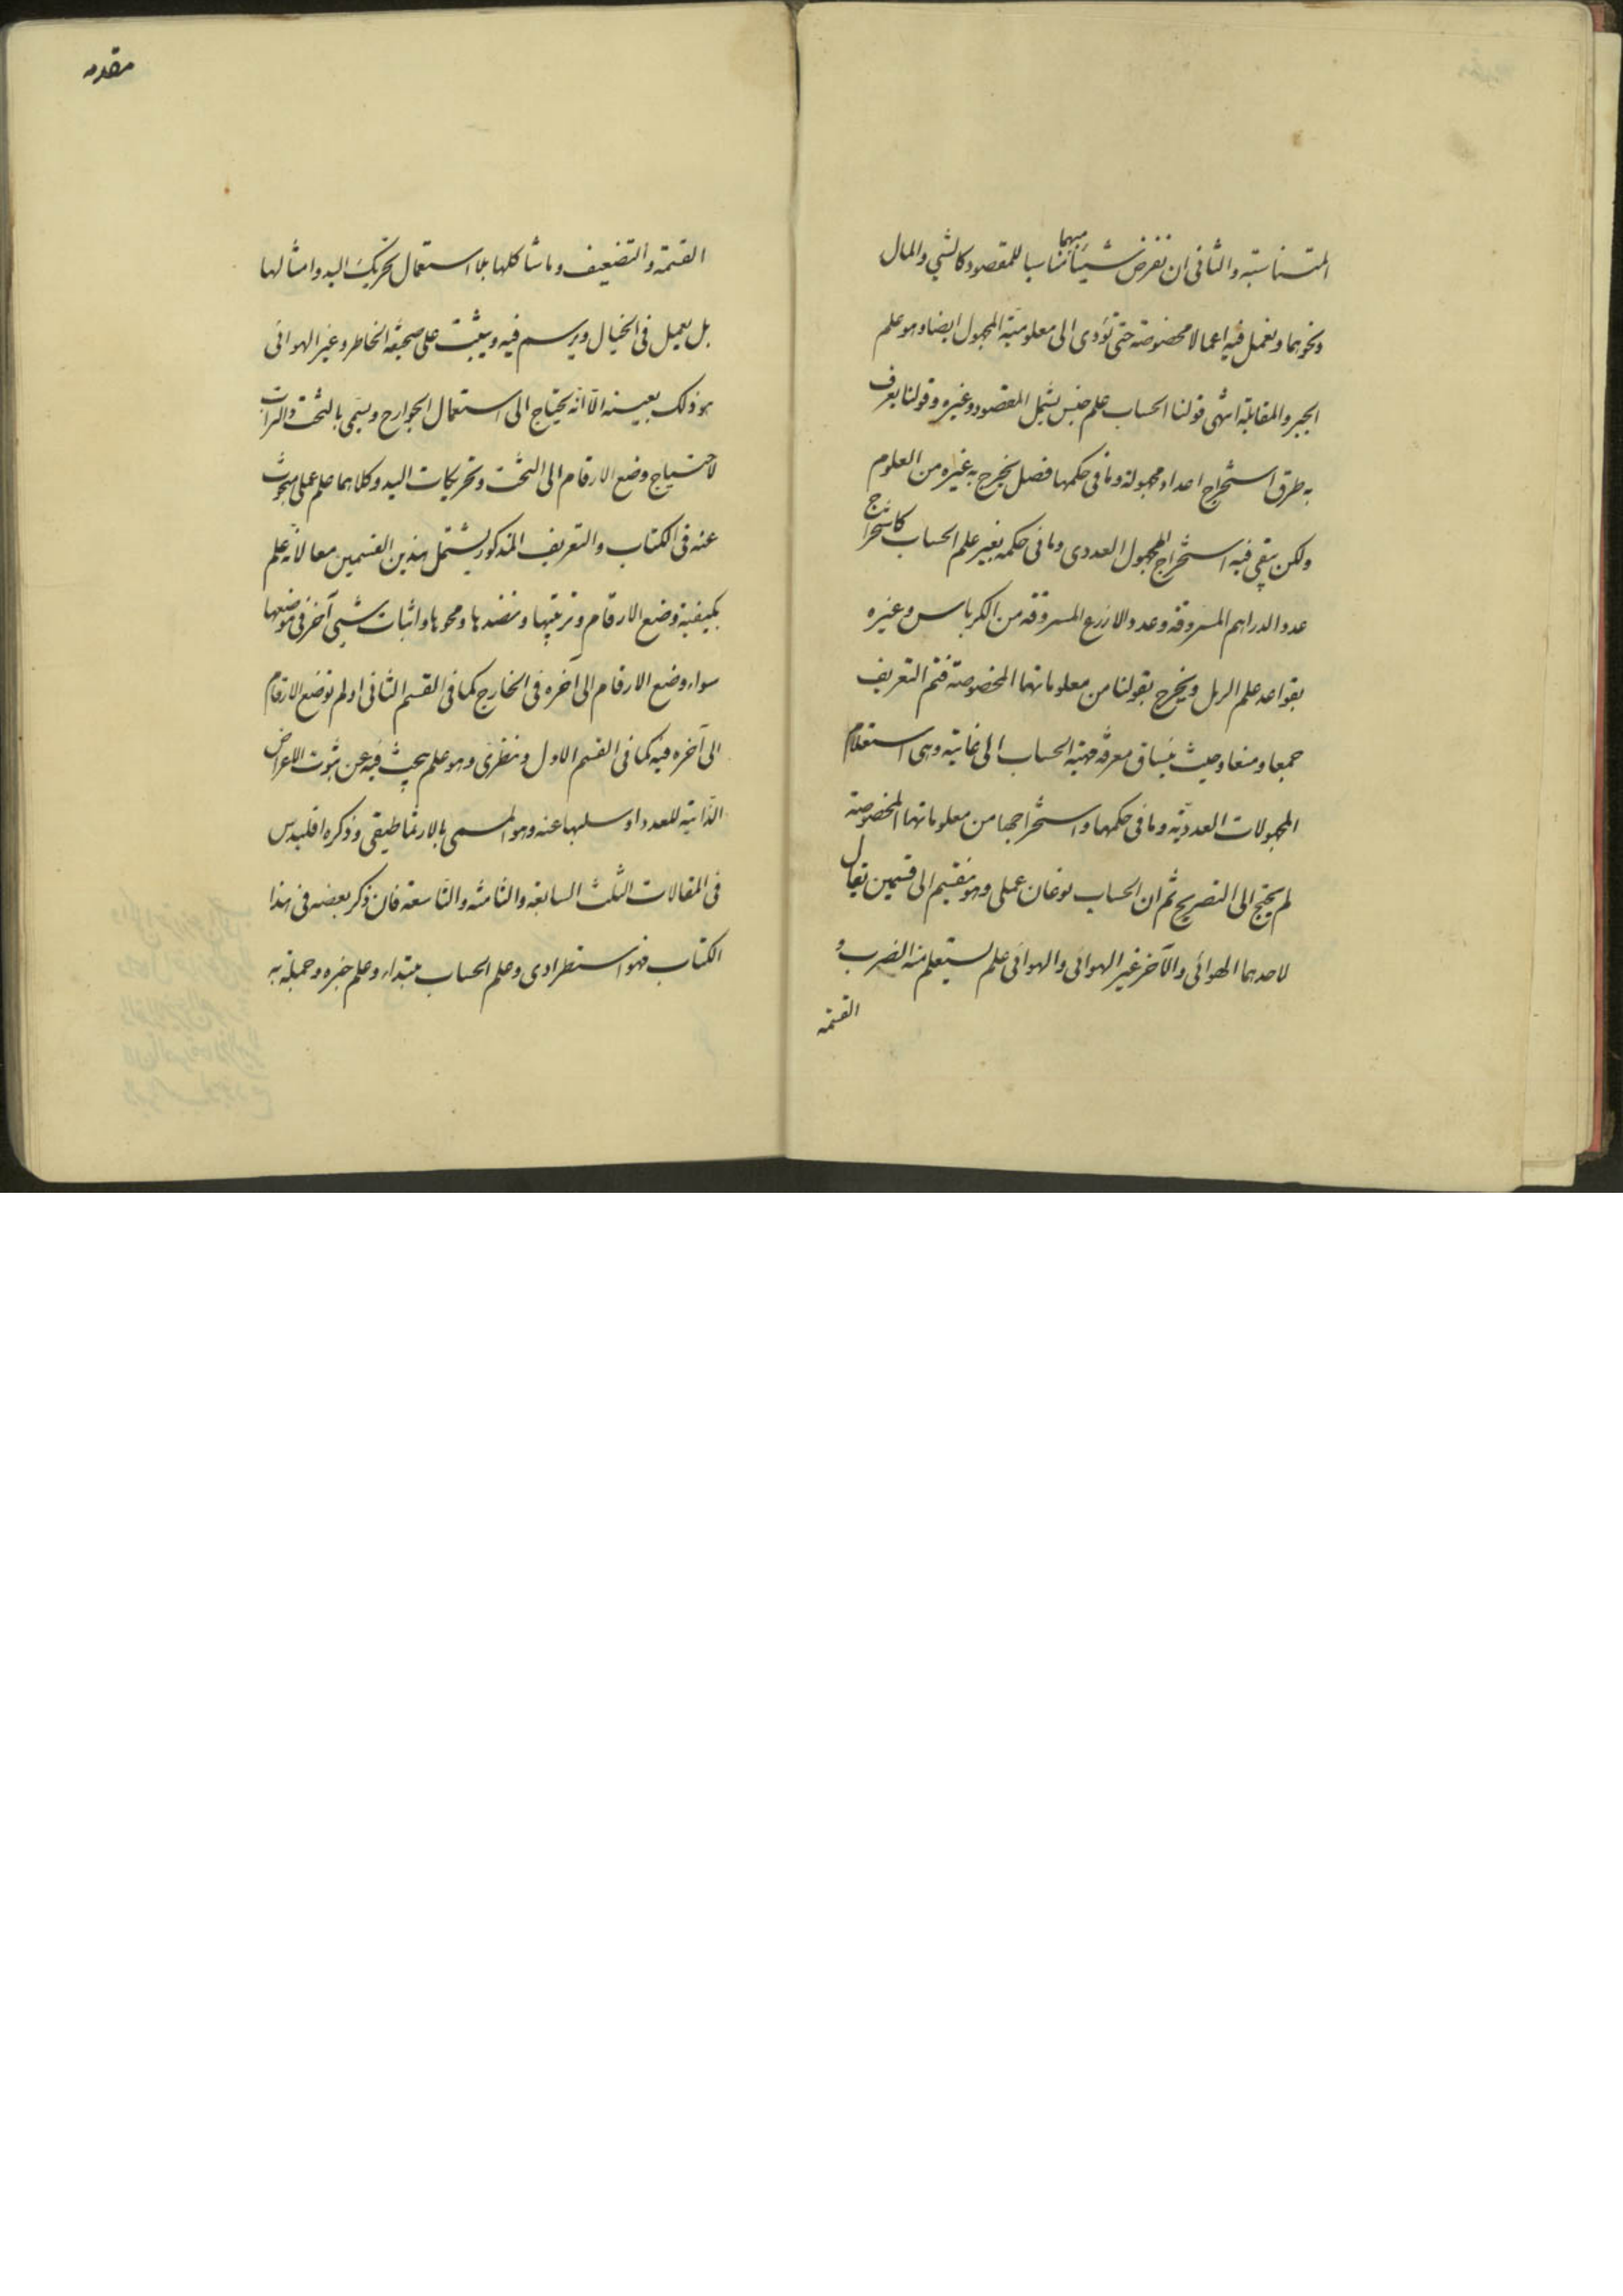 المتناسبة والثانى ان نفرض شيئا مبهما مناسبا للمقصود كالشئ والمال
ونحوهما ونعمل فيه اعمالا مخصوصة حتى تؤدى الى معلومية المجهول ايضا وهو علم
الجبر والمقابلة انتهى قولنا الحساب علم جنس يشمل المقصود وغيره وقولنا يعرف
به طرق استخراج اعداد مجهولة وما فى حكمها فصل يخرج به غيره من العلوم
ولكن يبقى فيه استخراج المجهول العددى وما فى حكمه بغير علم الحساب كاستخراج
عدد الدراهم المسروقة وعدد الاذرع المسروقة من الكرباس وغيره
بقواعد علم الرمل ويخرج بقولنا من معلوماتها المخصوصة فتم التعريف
جمعا ومنعا وحيث ينساق معرفة مهية الحساب الى غايته وهى استعلام
المجهولات العددية وما فى حكمها واستخراجها من معلوماتها المخصوصة
لم يحتج الى التصريح ثم ان الحساب نوعان عملى وهو منقسم الى قسمين يقال
لاحدهما الهوائى والآخر غير الهوائى والهوائى علم يستعلم منه الضرب و
القسمة
مقدمه
القسمة والتضعيف وما شاكلها بلا استعمال تحريك اليد وامثالها
بل يعمل فى الخيال ويرسم فيه ويثبت على صحيفة الخاطر وغير الهوائى
هو ذلك بعينه الا انه يحتاج الى استعمال الجوارح ويسمى بالتخت والتراب
لاحتياج وضع الارقام الى التخت وتحريكات اليد وكلاهما علم عملى مبحوث
عنه فى الكتاب والتعريف المذكور يشتمل هذين القسمين معا لانه علم
بكيفية وضع الارقام وترتيبها ونضدها ومحوها واثبات شيئ آخر فى موضعها
سواء وضع الارقام الى آخره فى الخارج كما فى القسم الثانى او لم توضع الارقام
الى آخره فيه كما فى القسم الاول ونظرى وهو علم يبحث فيه عن ثبوت الاعراض
الذاتية للعدد او سلبها عنه وهو المسمى بالارثماطيقى وذكره اقليدس
فى المقالات الثلث السابعة والثامنة والتاسعة فان ذكر بعضه فى هذا
الكتاب فهو استطرادى وعلم الحساب مبتداء وعلم خبره وجملة به